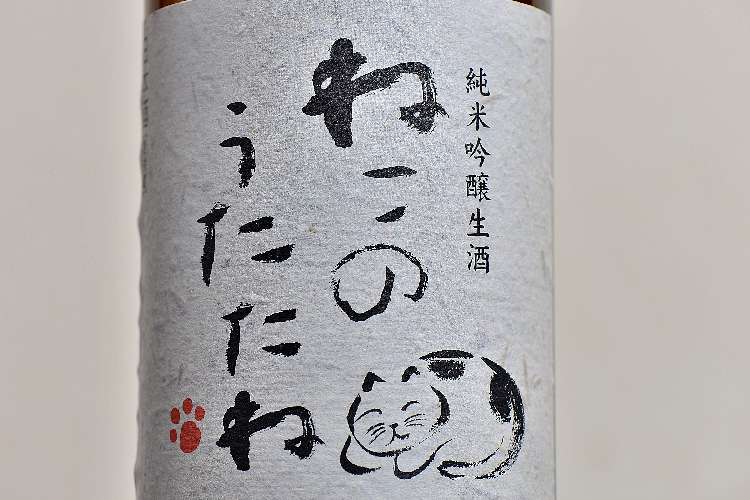 純米吟醸生酒
ねこの
うたたね